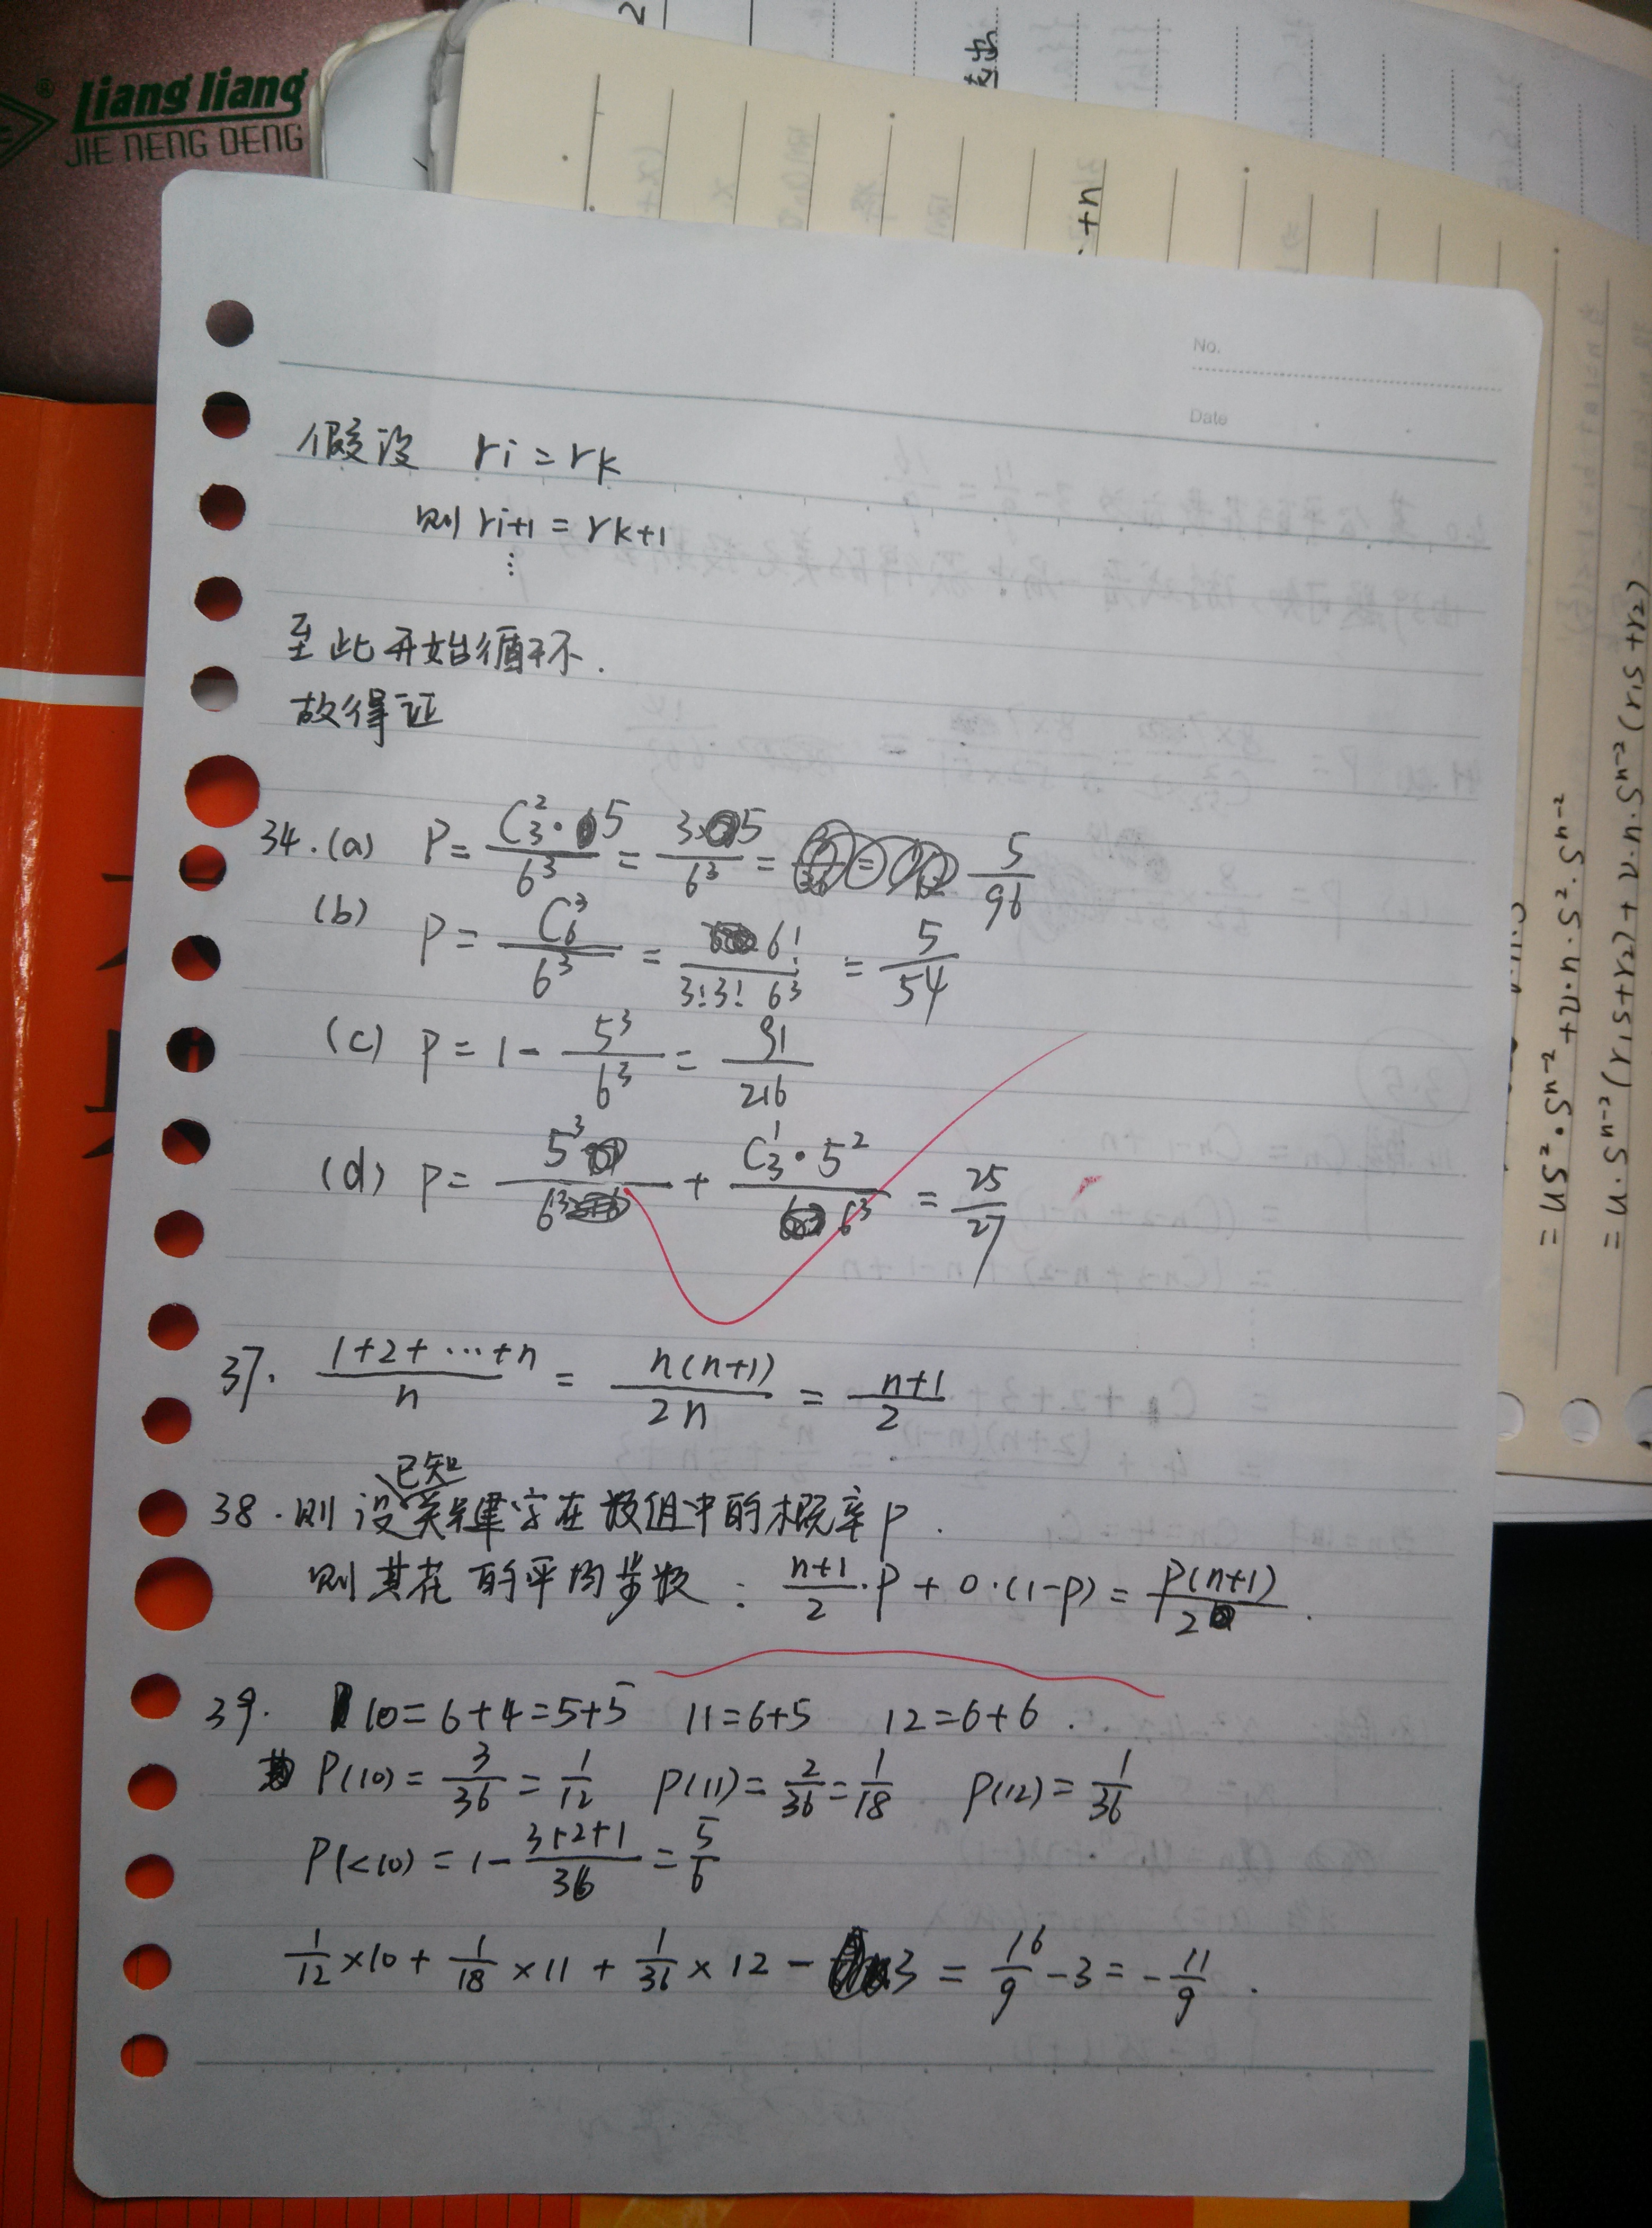 liang liang
JIE NENG DENG
+n
No.
Date
假设 ri = rk
则 ri+1 = rk+1
⋮
至此开始循环.
故得证
34.(a) P = C₃²·5/6³ = 3·5/6³ = 5/96
(b) P = C₆³/6³ = 6!/3!3! 6³ = 5/54
(c) P = 1 - 5³/6³ = 91/216
(d) P = 5³/6³ + C₃¹·5²/6³ = 25/27
37. 1+2+⋯+n/n = n(n+1)/2n = n+1/2
38. 则设已知关键字在数组中的概率P.
则其花的平均步数: n+1/2·P + 0·(1-P) = P(n+1)/2.
39. 10=6+4=5+5 11=6+5 12=6+6.
P(10) = 3/36 = 1/12 P(11) = 2/36 = 1/18 P(12) = 1/36
P(<10) = 1 - 3+2+1/36 = 5/6
1/12×10 + 1/18×11 + 1/36×12 - 3 = 16/9 - 3 = -11/9.
= us²·Sⁿ⁻² + v·n·s²·Sⁿ⁻²
= u·Sⁿ⁻²(r₁s+r₂) + v·n·Sⁿ⁻²(r₁s+r₂)